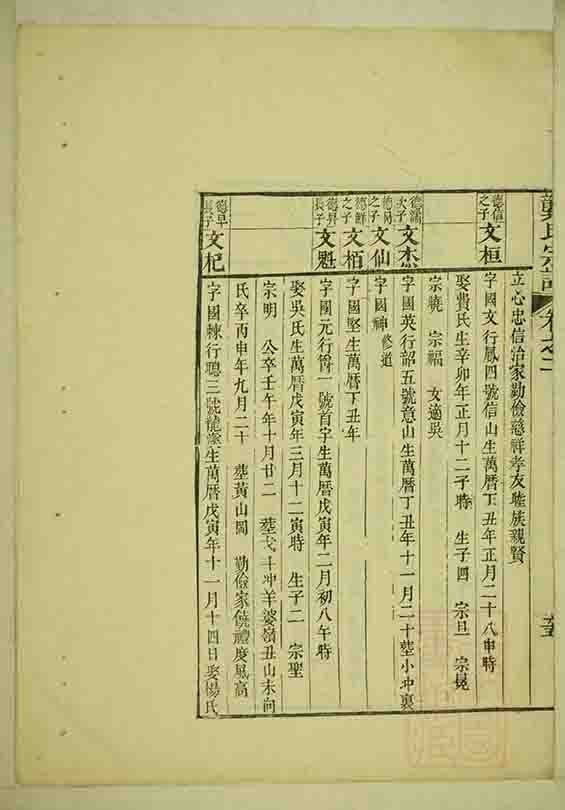 龔氏宗譜 卷之二 六十五
立心忠信治家勤儉慈祥孝友睦族親賢
德信之子 文桓 字國文行鳳四號信山生萬曆丁丑年正月二十八申時
娶費氏生辛卯年正月十二子時 生子四 宗旦 宗晃
宗曉 宗福 女適吳
德謠次子 文杰 字國英行韶五號意山生萬曆丁丑年十一月二十塟小冲裏
之子 文仙 字國神 修道
德鮮之子 文栢 字國堅生萬曆丁丑年
德昇長子 文魁 字國元行爵一號首字生萬曆戊寅年二月初八午時
娶吳氏生萬曆戊寅年三月十二寅時 生子二 宗聖
宗明 公卒壬午年十月廿二 塟弋十冲羊婆嶺丑山未向
氏卒丙申年九月二十 塟黃山岡 勤儉家饒禮度風高
德早長子 文杞 字國棟行聰三號龍溪生萬曆戊寅年十一月十四日娶楊氏